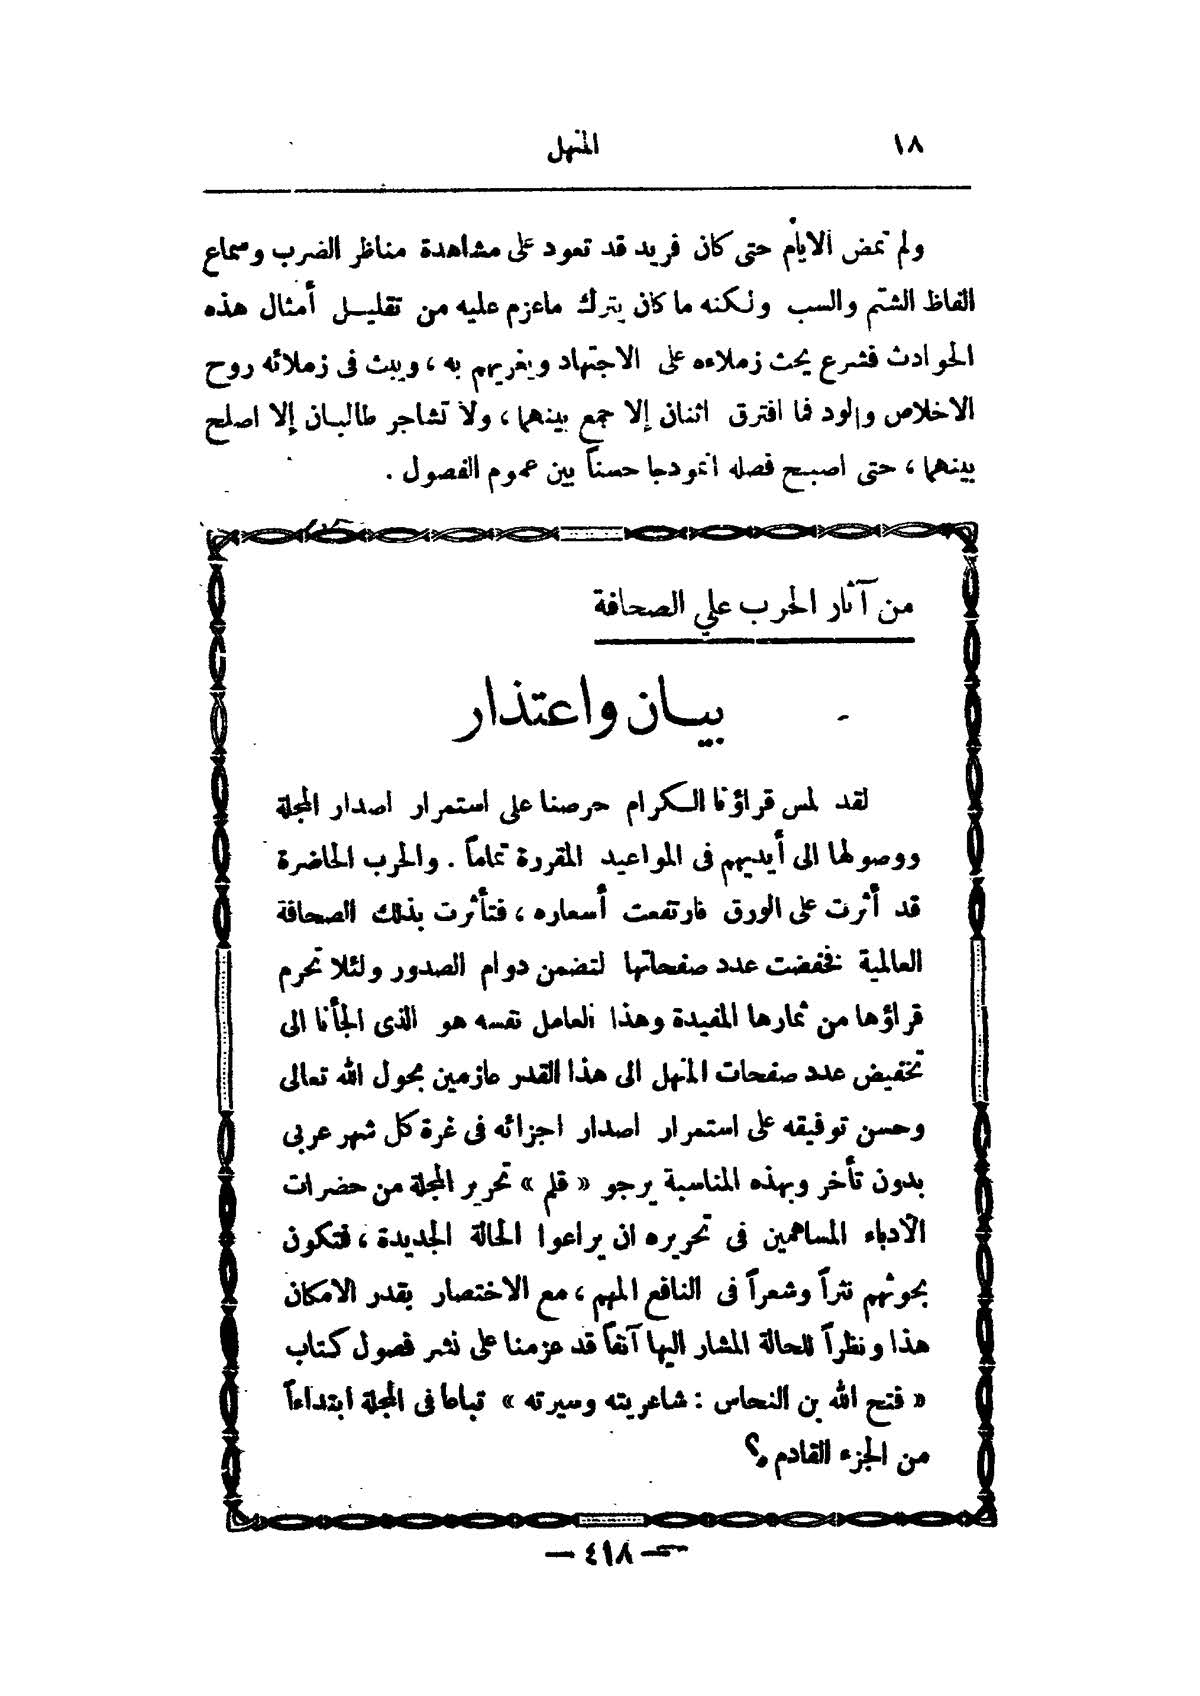 ١٨
المنهل
ولم تمض الايام حتى كان فريد قد تعود على مشاهدة مناظر الضرب وسماع
الفاظ الشتم والسب ولكنه ما كان يترك ماعزم عليه من تقليل أمثال هذه
الحوادث فشرع يحث زملاءه على الاجتهاد ويغريهم به ، ويبث فى زملائه روح
الاخلاص والود فما افترق اثنان إلا جمع بينهما ، ولا تشاجر طالبان إلا اصلح
بينهما ، حتى اصبح فصله انموذجا حسناً بين عموم الفصول .
من آثار الحرب علي الصحافة
بيان واعتذار
لقد لمس قراؤنا الكرام حرصنا على استمرار اصدار المجلة
ووصولها الى أيديهم فى المواعيد المقررة تماماً . والحرب الحاضرة
قد أثرت على الورق فارتفعت أسعاره ، فتأثرت بذلك الصحافة
العالمية فخفضت عدد صفحاتها لتضمن دوام الصدور ولئلا تحرم
قراؤها من ثمارها المفيدة وهذا العامل نفسه هو الذى الجأنا الى
تخفيض عدد صفحات المنهل الى هذا القدر عازمين بحول الله تعالى
وحسن توفيقه على استمرار اصدار اجزائه فى غرة كل شهر عربى
بدون تأخر وبهذه المناسبة يرجو « قلم » تحرير المجلة من حضرات
الأدباء المساهمين فى تحريره ان يراعوا الحالة الجديدة ، فتكون
بحوثهم نثراً وشعراً فى النافع المهم ، مع الاختصار بقدر الامكان
هذا ونظراً للحالة المشار اليها آنفاً قد عزمنا على نشر فصول كتاب
« فتح الله بن النحاس : شاعريته وسيرته » تباعا فى المجلة ابتداءاً
من الجزء القادم
— ٤١٨ —